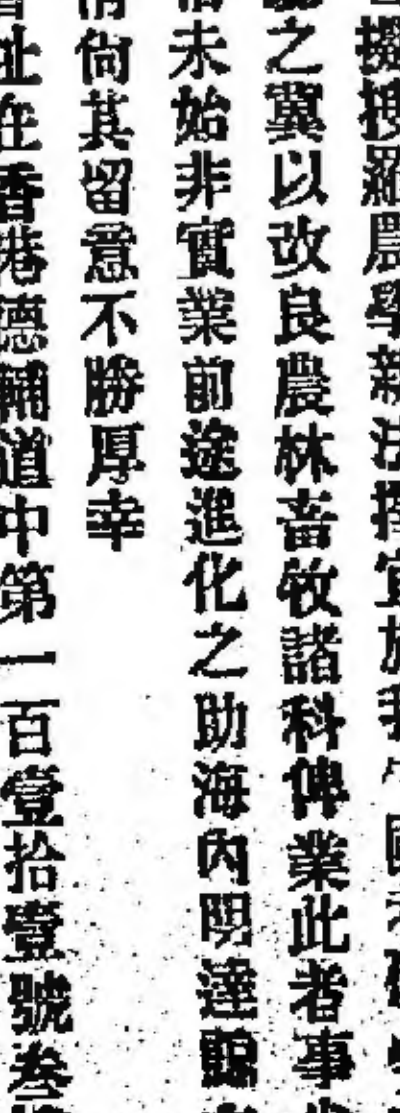 搜羅農學新法擇宜於我中國
之冀以改良農林畜牧諸科俾業此者事
未始非實業前途進化之助海內明達
尙其留意不勝厚幸
址在香港德輔道中第一百壹拾壹號叁